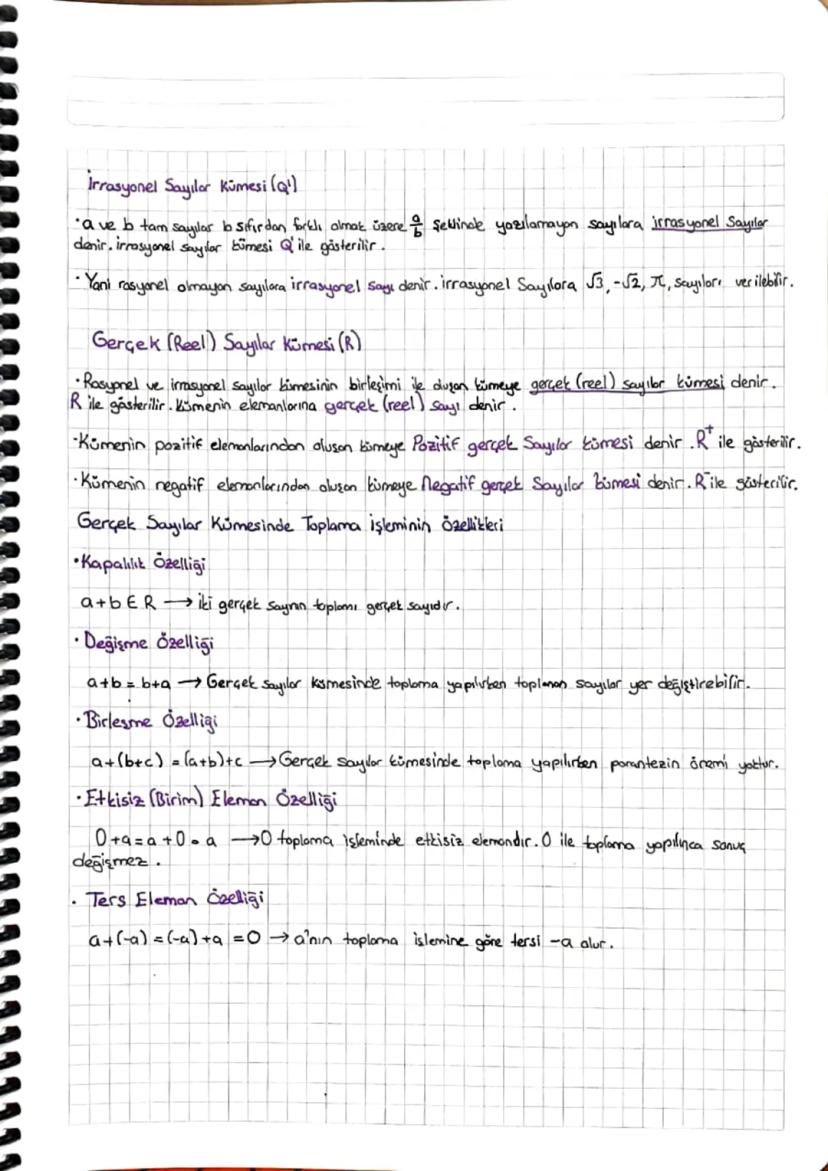 İrrasyonel Sayılar Kümesi (Q')
• a ve b tam sayılar b sıfırdan farklı olmak üzere a/b şeklinde yazılamayan sayılara irrasyonel Sayılar
denir. irrasyonel sayılar kümesi Q' ile gösterilir.
• Yani rasyonel olmayan sayılara irrasyonel sayı denir. irrasyonel Sayılara √3, -√2, π, sayıları verilebilir.
Gerçek (Reel) Sayılar Kümesi (R)
• Rasyonel ve irrasyonel sayılar kümesinin birleşimi ile oluşan kümeye gerçek (reel) sayılar kümesi denir.
R ile gösterilir. Kümenin elemanlarına gerçek (reel) sayı denir.
• Kümenin pozitif elemanlarından oluşan kümeye Pozitif gerçek Sayılar kümesi denir. R⁺ ile gösterilir.
• Kümenin negatif elemanlarından oluşan kümeye Negatif gerçek Sayılar kümesi denir. R⁻ ile gösterilir.
Gerçek Sayılar Kümesinde Toplama işleminin özellikleri
• Kapalılık Özelliği
a+b ∈ R → iki gerçek sayının toplamı gerçek sayıdır.
• Değişme Özelliği
a+b = b+a → Gerçek sayılar kümesinde toplama yapılırken toplanan sayılar yer değiştirebilir.
• Birleşme Özelliği
a+(b+c) = (a+b)+c → Gerçek sayılar kümesinde toplama yapılırken parantezin önemi yoktur.
• Etkisiz (Birim) Eleman Özelliği
0+a = a+0 = a → 0 toplama işleminde etkisiz elemandır. 0 ile toplama yapılınca sonuç
değişmez.
• Ters Eleman Özelliği
a+(-a) = (-a)+a = 0 → a'nın toplama işlemine göre tersi -a olur.